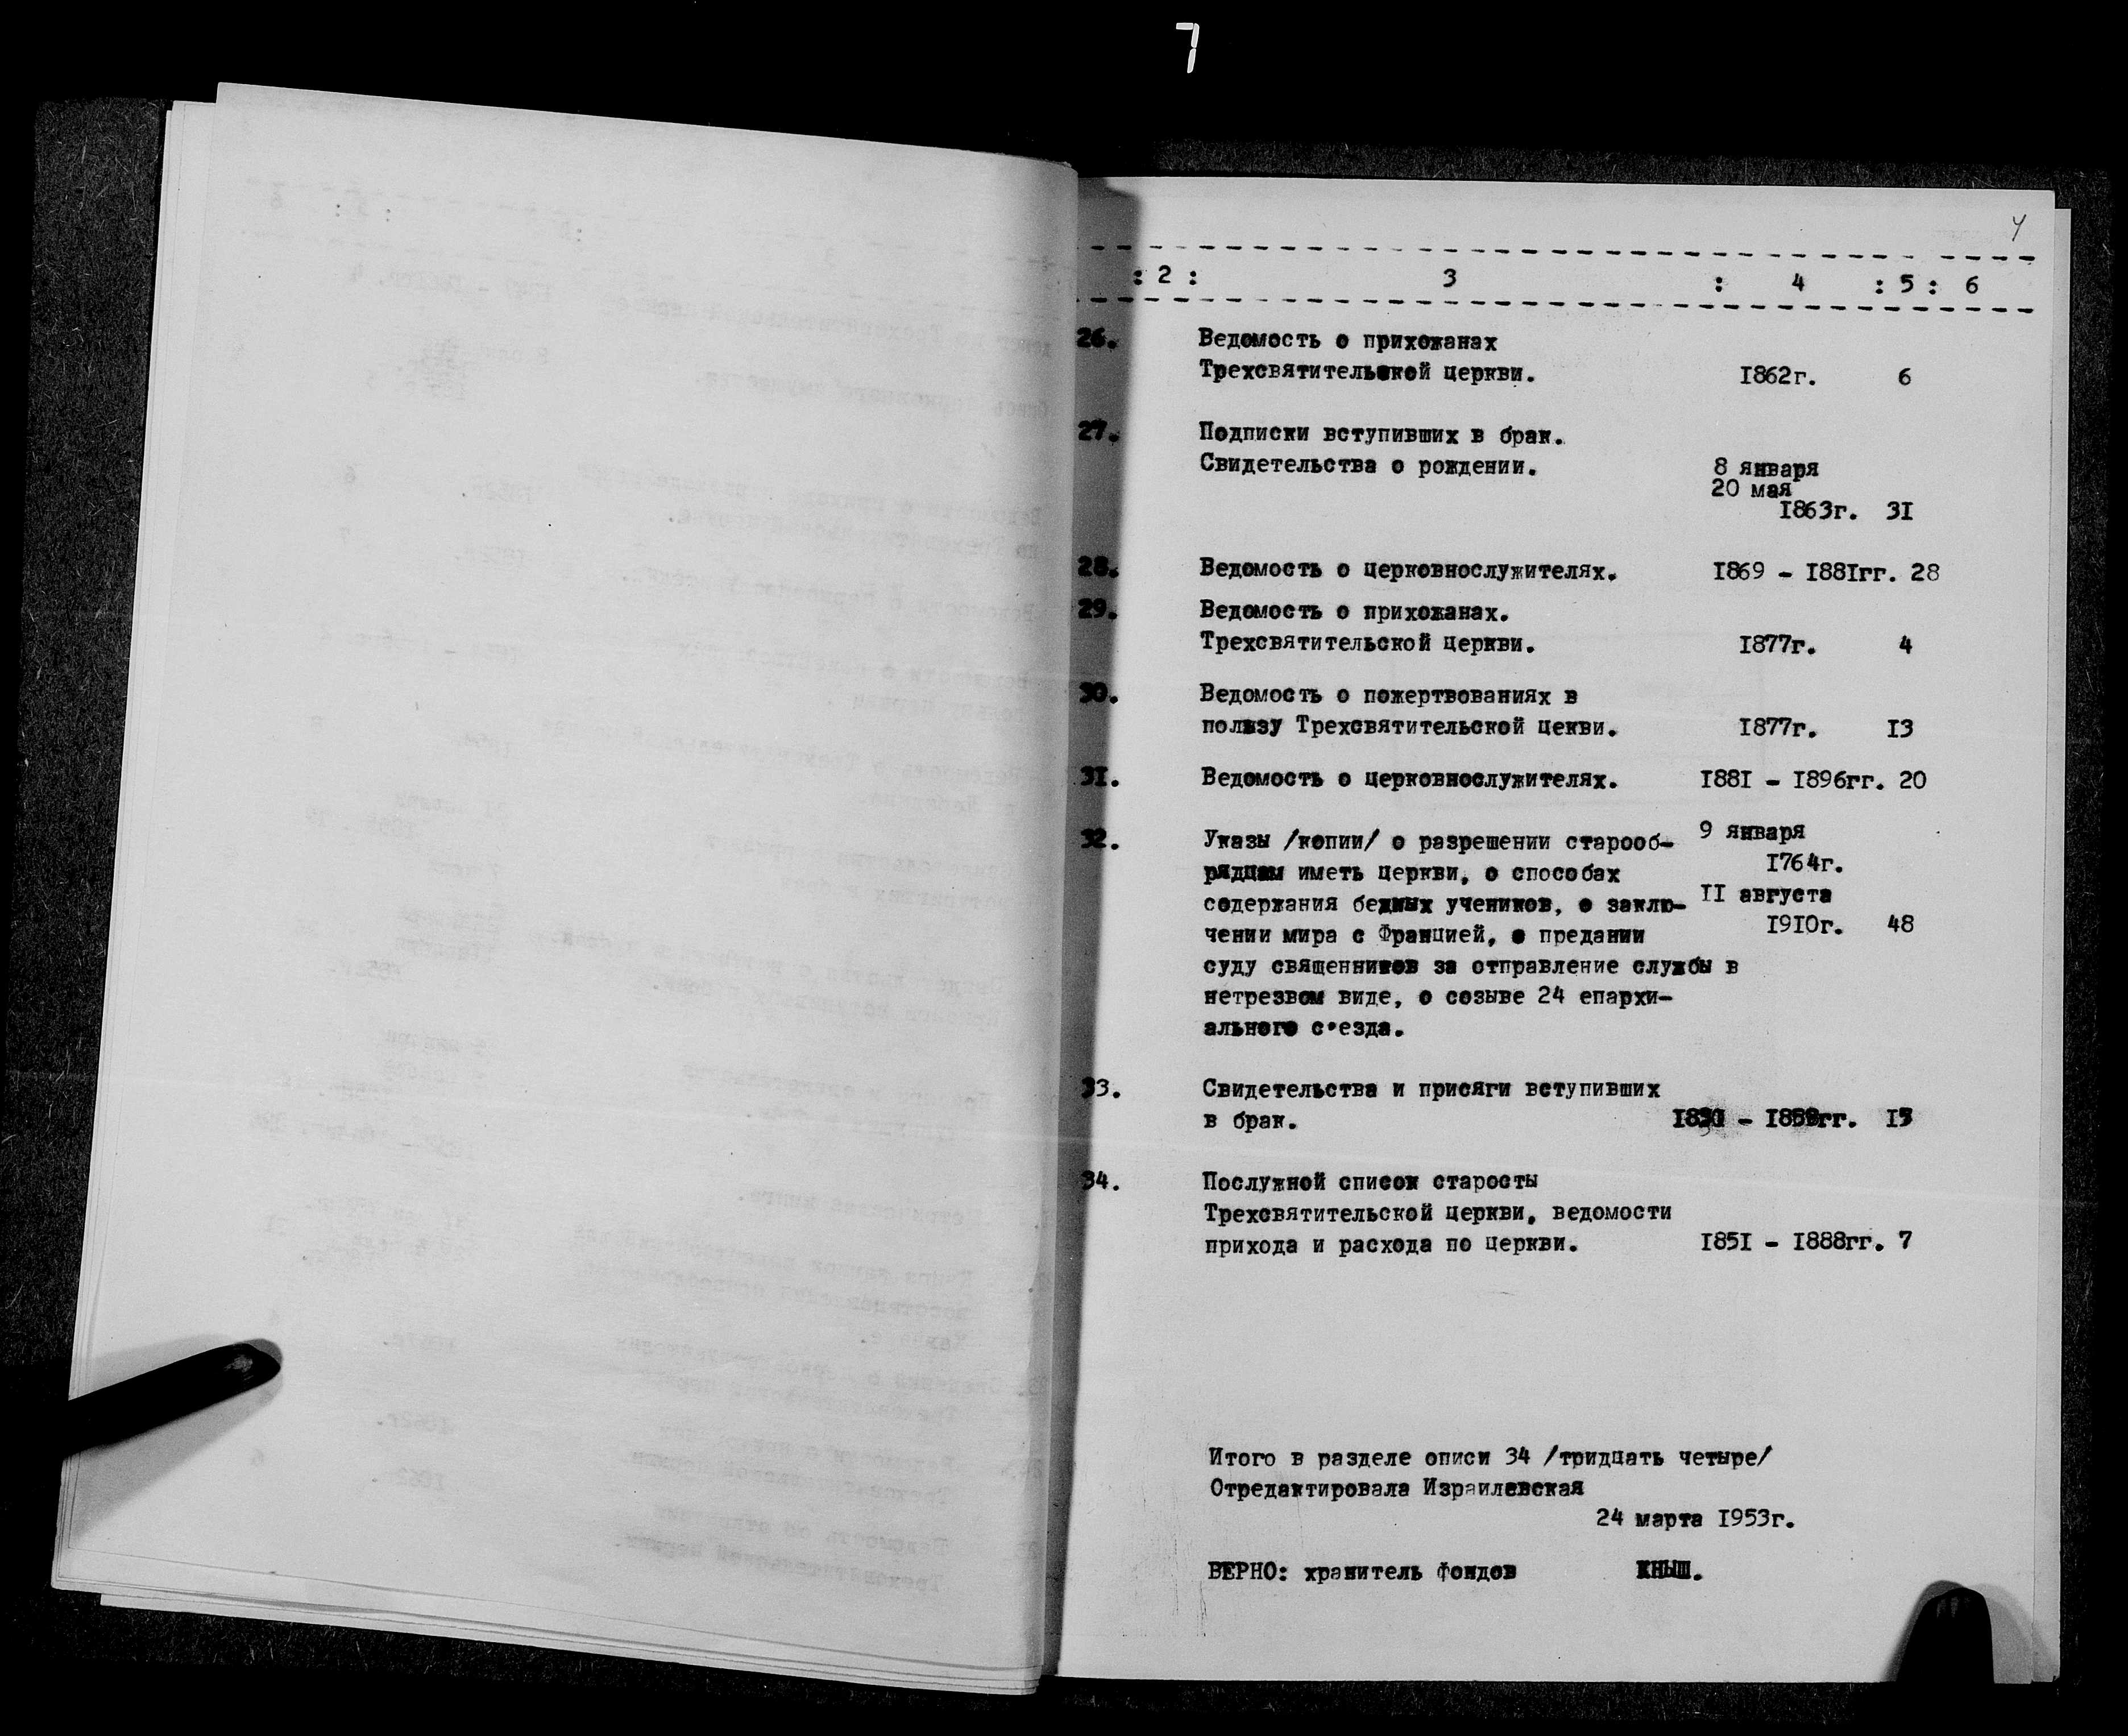 7
4
: 2 : 3 : 4 : 5 : 6
26. Ведомость о прихожанах
Трехсвятительской церкви. 1862г. 6
27. Подписки вступивших в брак.
Свидетельства о рождении. 8 января
20 мая
1863г. 31
28. Ведомость о церковнослужителях. 1869 - 1881гг. 28
29. Ведомость о прихожанах.
Трехсвятительской церкви. 1877г. 4
30. Ведомость о пожертвованиях в
пользу Трехсвятительской цекви. 1877г. 13
31. Ведомость о церковнослужителях. 1881 - 1896гг. 20
32. Указы /копии/ о разрешении старооб- 9 января
рядцам иметь церкви, о способах 1764г.
содержания бедных учеников, о заклю- 11 августа
чении мира с Францией, о предании 1910г. 48
суду священников за отправление службы в
нетрезвом виде, о созыве 24 епархи-
ального с'езда.
33. Свидетельства и присяги вступивших
в брак.
34. Послужной список старосты
Трехсвятительской церкви, ведомости
прихода и расхода по церкви. 1851 - 1888гг. 7
Итого в разделе описи 34 /тридцать четыре/
Отредактировала Израилевская
24 марта 1953г.
ВЕРНО: хранитель фондов КНЫШ.